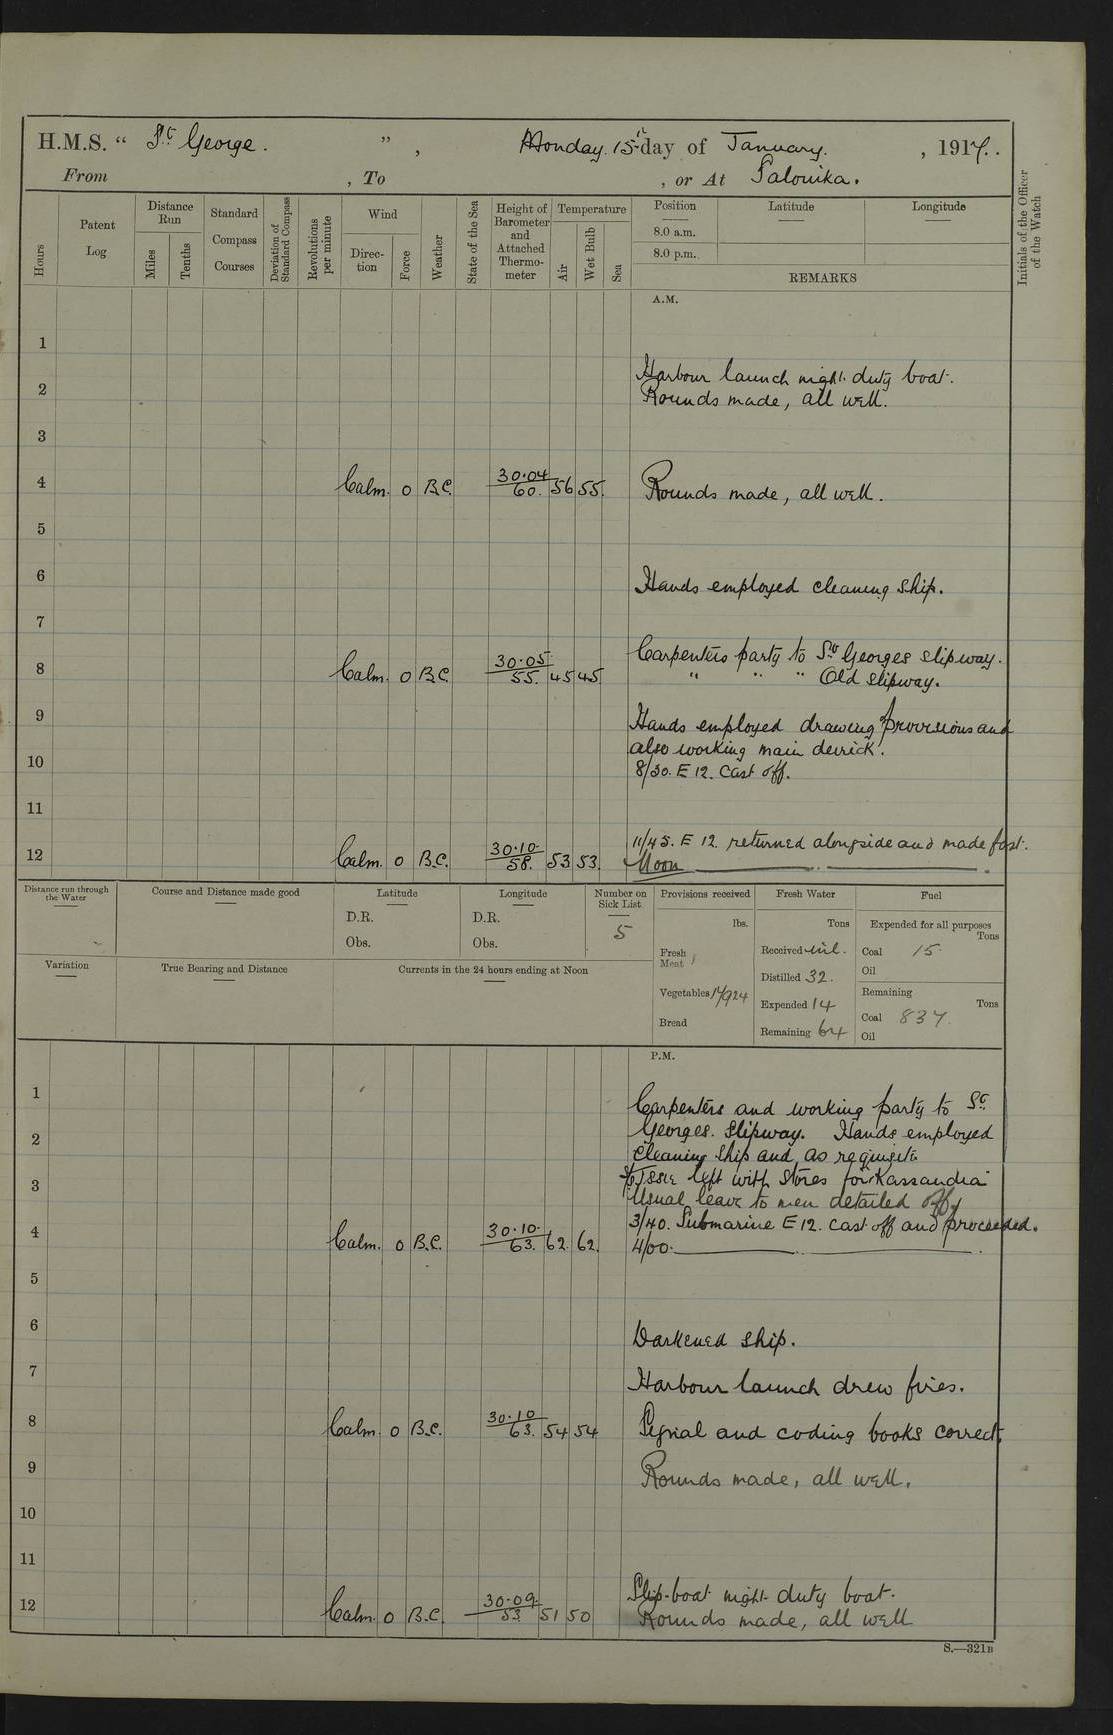 H.M.S. “ St George. ” , Monday 15th day of January. , 1917.
From , To , or At Salonika.
Hours
Patent Log
Distance Run
Miles
Tenths
Standard Compass Courses
Deviation of Standard Compass
Revolutions per minute
Wind
Direction
Force
Weather
State of the Sea
Height of Barometer and Attached Thermometer
Temperature
Air
Wet Bulb
Sea
Position Latitude Longitude
8.0 a.m.
8.0 p.m.
REMARKS
Initials of the Officer of the Watch
A.M.
1
Harbour launch night duty boat.
2 Rounds made, all well.
3
4 Calm. 0 B.C. 30.04/60. 56 55. Rounds made, all well.
5
6 Hands employed cleaning ship.
7
Carpenters party to St Georges slipway.
8 Calm. 0 B.C. 30.05/55. 45 45 " " " Old slipway.
9 Hands employed drawing provisions and
also working main derrick.
10 8/30. E 12. cast off.
11
11/45. E 12. returned alongside and made fast.
12 Calm. 0 B.C. 30.10/58. 53 53. Noon
Distance run through the Water
Course and Distance made good
Latitude
D.R.
Obs.
Longitude
D.R.
Obs.
Number on Sick List
5
Provisions received
lbs.
Fresh Meat
Vegetables
Bread
Fresh Water
Tons
Received nil.
Distilled 32.
Expended 14
Remaining 64
Fuel
Expended for all purposes
Tons
Coal 15
Oil
Remaining
Tons
Coal 837
Oil
Variation
True Bearing and Distance
Currents in the 24 hours ending at Noon
P.M.
1 Carpenters and working party to St
2 Georges. slipway. Hands employed
cleaning ship and as requisite
3 left with stores for Kassandra
Usual leave to men detailed off
3/40. Submarine E 12. cast off and proceeded.
4 Calm. 0 B.C. 30.10/63. 62. 62. 4/00.
5
6 Darkened ship.
7 Harbour launch drew fires.
8 Calm. 0 B.C. 30.10/63. 54 54 Signal and coding books correct.
9 Rounds made, all well.
10
11
Slip-boat night duty boat.
12 Calm. 0 B.C. 30.09/53. 51 50 Rounds made, all well
S.—321B